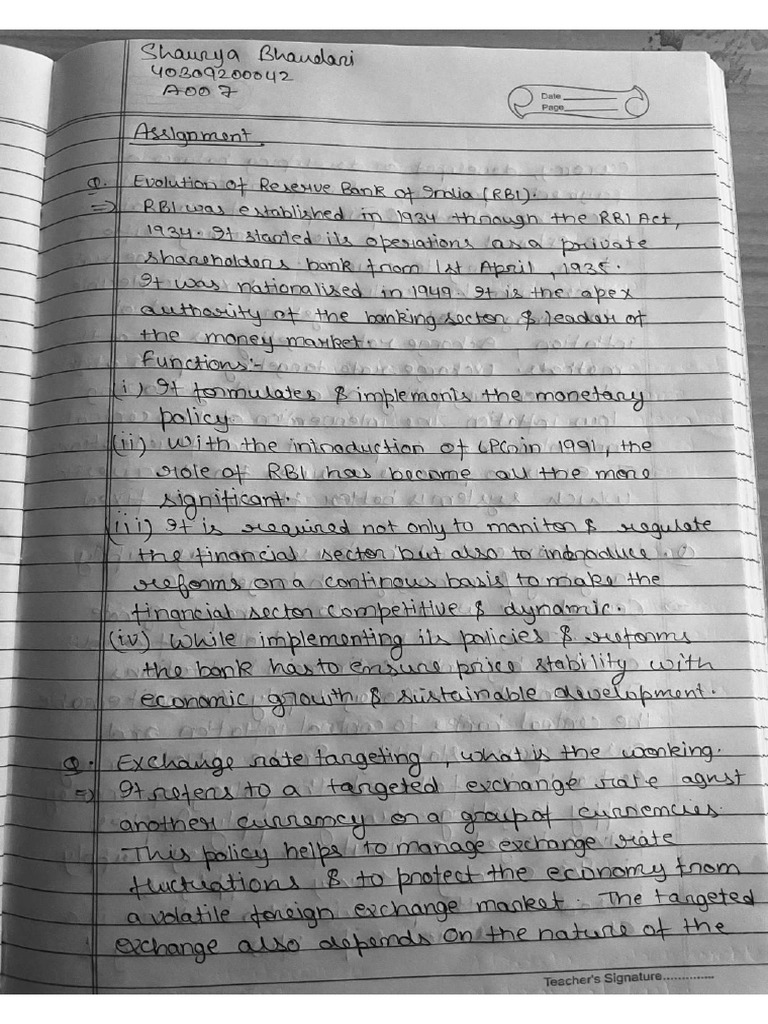 Shaurya Bhandari
40309200042
A007
Date
Page
Assignment
Q. Evolution of Reserve Bank of India (RBI).
=> RBI was established in 1934 through the RBI Act,
1934. It started its operations as a private
shareholders bank from 1st April, 1935.
It was nationalised in 1949. It is the apex
authority of the banking sector & leader of
the money market.
Functions:-
(i) It formulates & implements the monetary
policy.
(ii) With the introduction of LPG in 1991, the
role of RBI has become all the more
significant.
(iii) It is required not only to monitor & regulate
the financial sector but also to introduce
reforms on a continous basis to make the
financial sector competitive & dynamic.
(iv) While implementing its policies & reforms
the bank has to ensure price stability with
economic growth & sustainable development.
Q. Exchange rate targeting, what is the working.
=> It refers to a targeted exchange rate agnst
another currency or a group of currencies.
This policy helps to manage exchange rate
fluctuations & to protect the economy from
a volatile foreign exchange market. The targeted
exchange also depends on the nature of the
Teacher's Signature..............